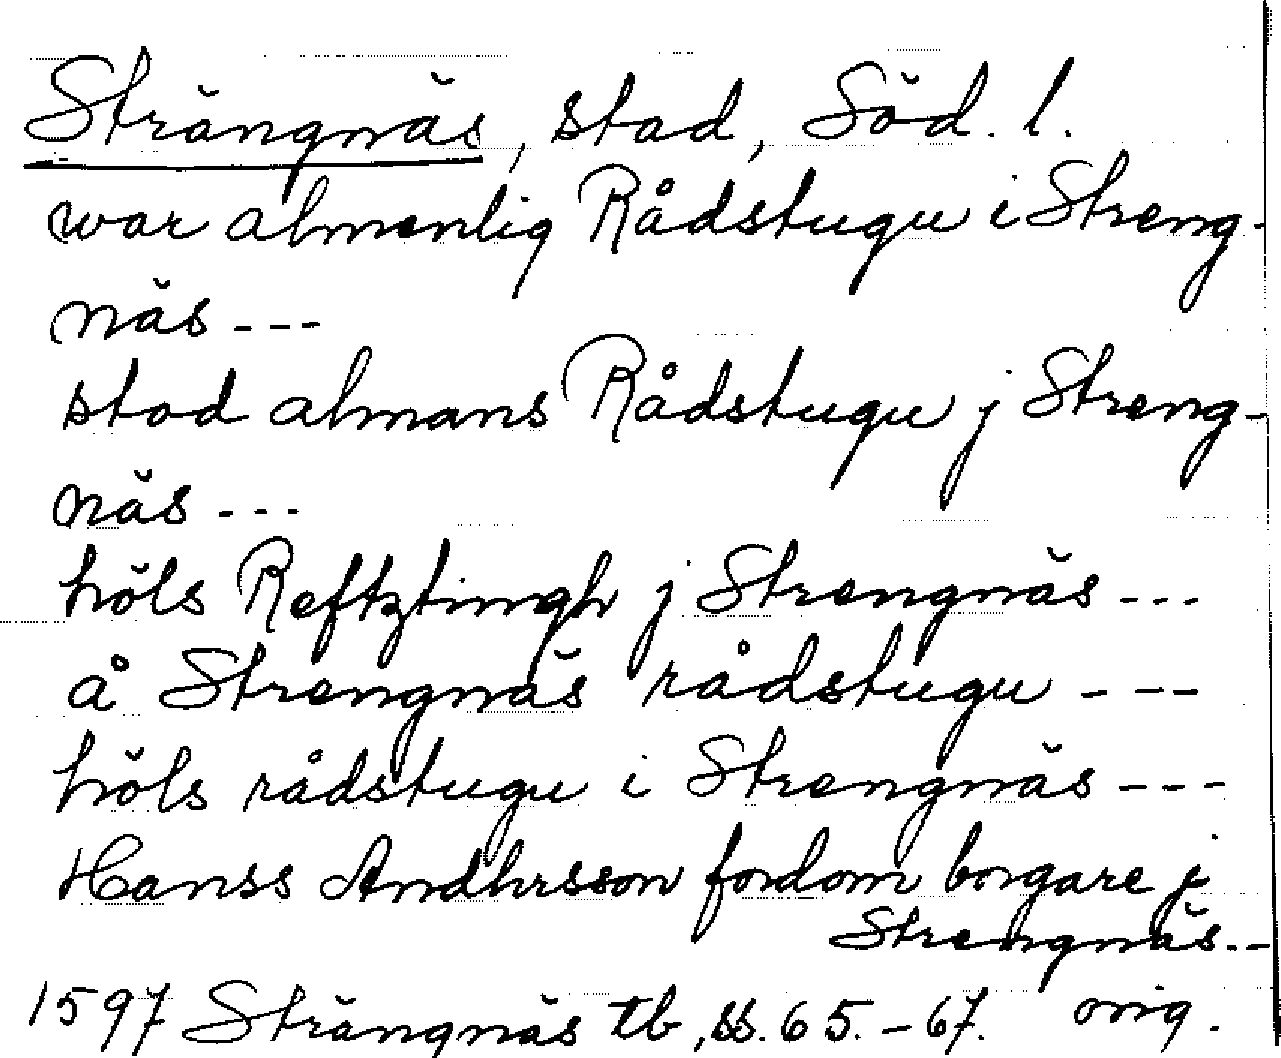 Strängnäs, stad, Söd. l.
war almenlig Rådstugu i Streng-
näs ---
stod almans Rådstugu j Streng-
näs ---
höls Reftztingh j Strengnäs ---
å Strengnäs rådstugu ---
höls rådstugu i Strengnäs ---
Hanss Andhrsson fordom borgare j
Strengnäs --
1597 Strängnäs tb, ss. 65. - 67. orig.